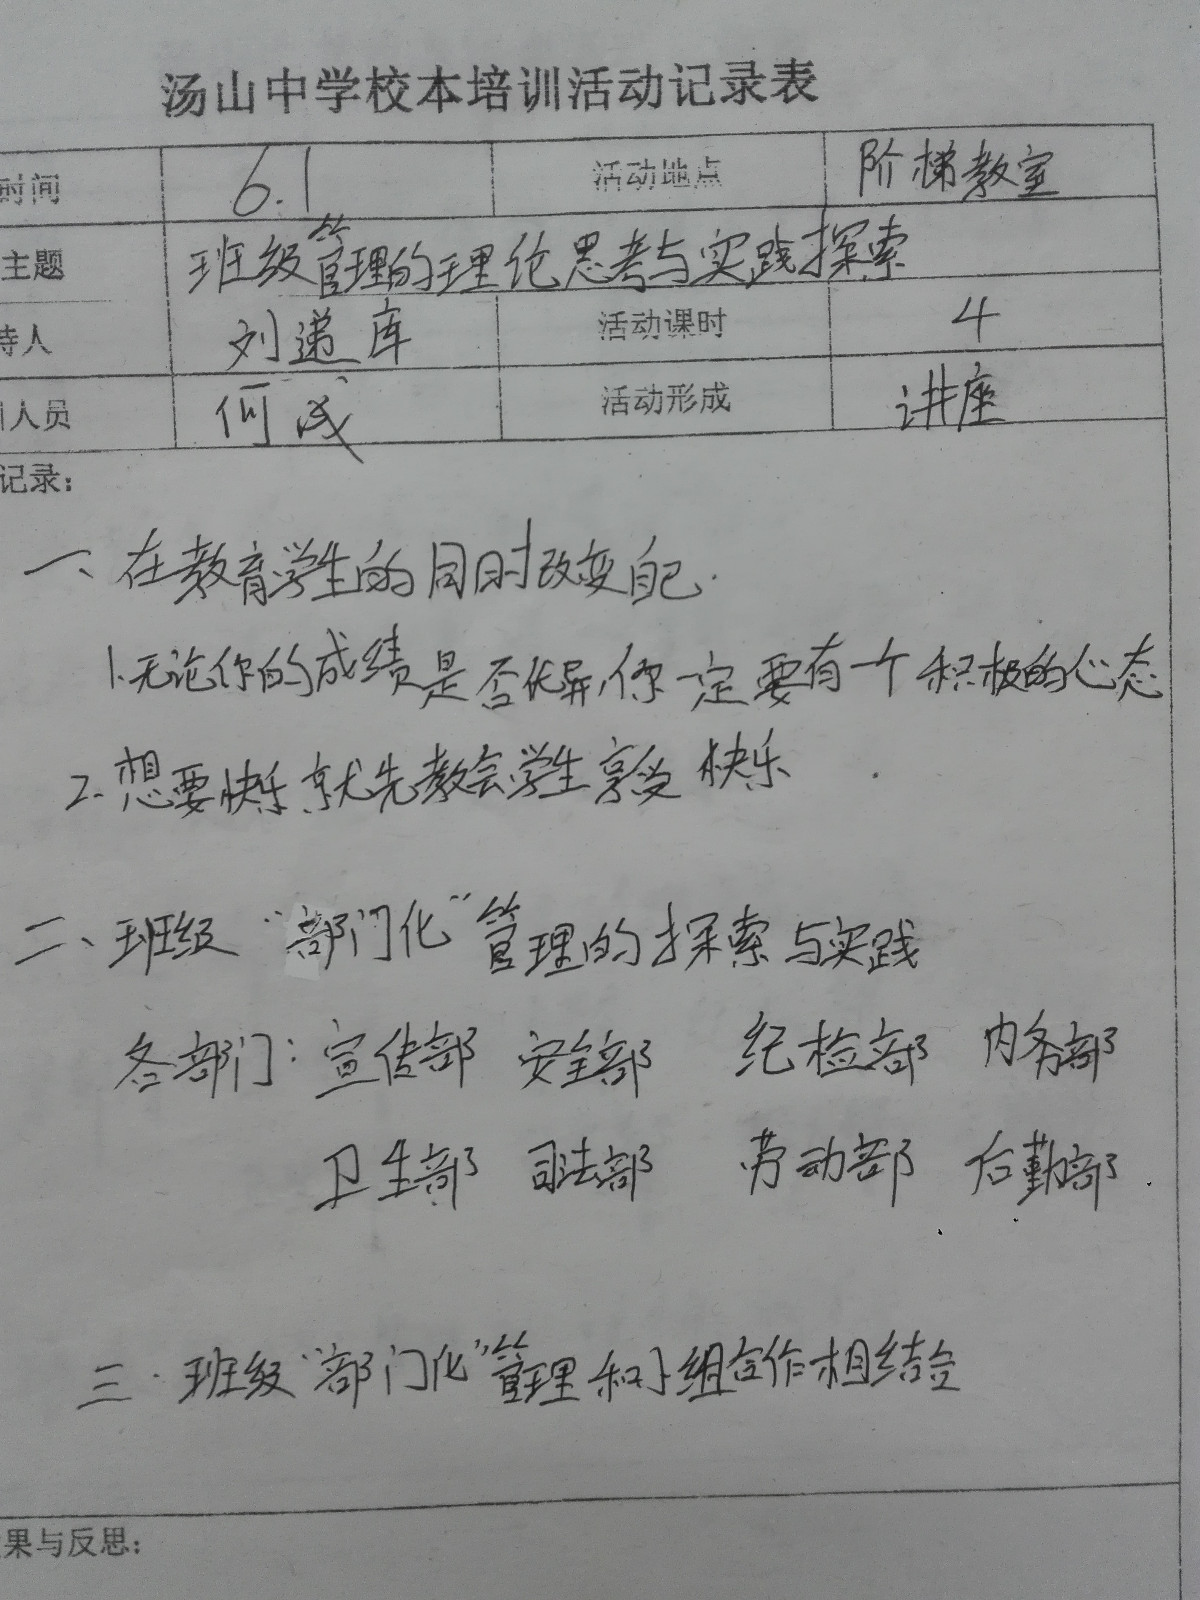 汤山中学校本培训活动记录表
时间 6.1 活动地点 阶梯教室
主题 班级管理的理论思考与实践探索
持人 刘递库 活动课时 4
人员 何成 活动形成 讲座
记录:
一、在教育学生的同时改变自己.
1.无论你的成绩是否优异,你一定要有一个积极的心态
2.想要快乐就先教会学生享受快乐
二、班级“部门化”管理的探索与实践
各部门:宣传部 安全部 纪检部 内务部
卫生部 司法部 劳动部 后勤部
三.班级“部门化”管理和小组合作相结合
果与反思: